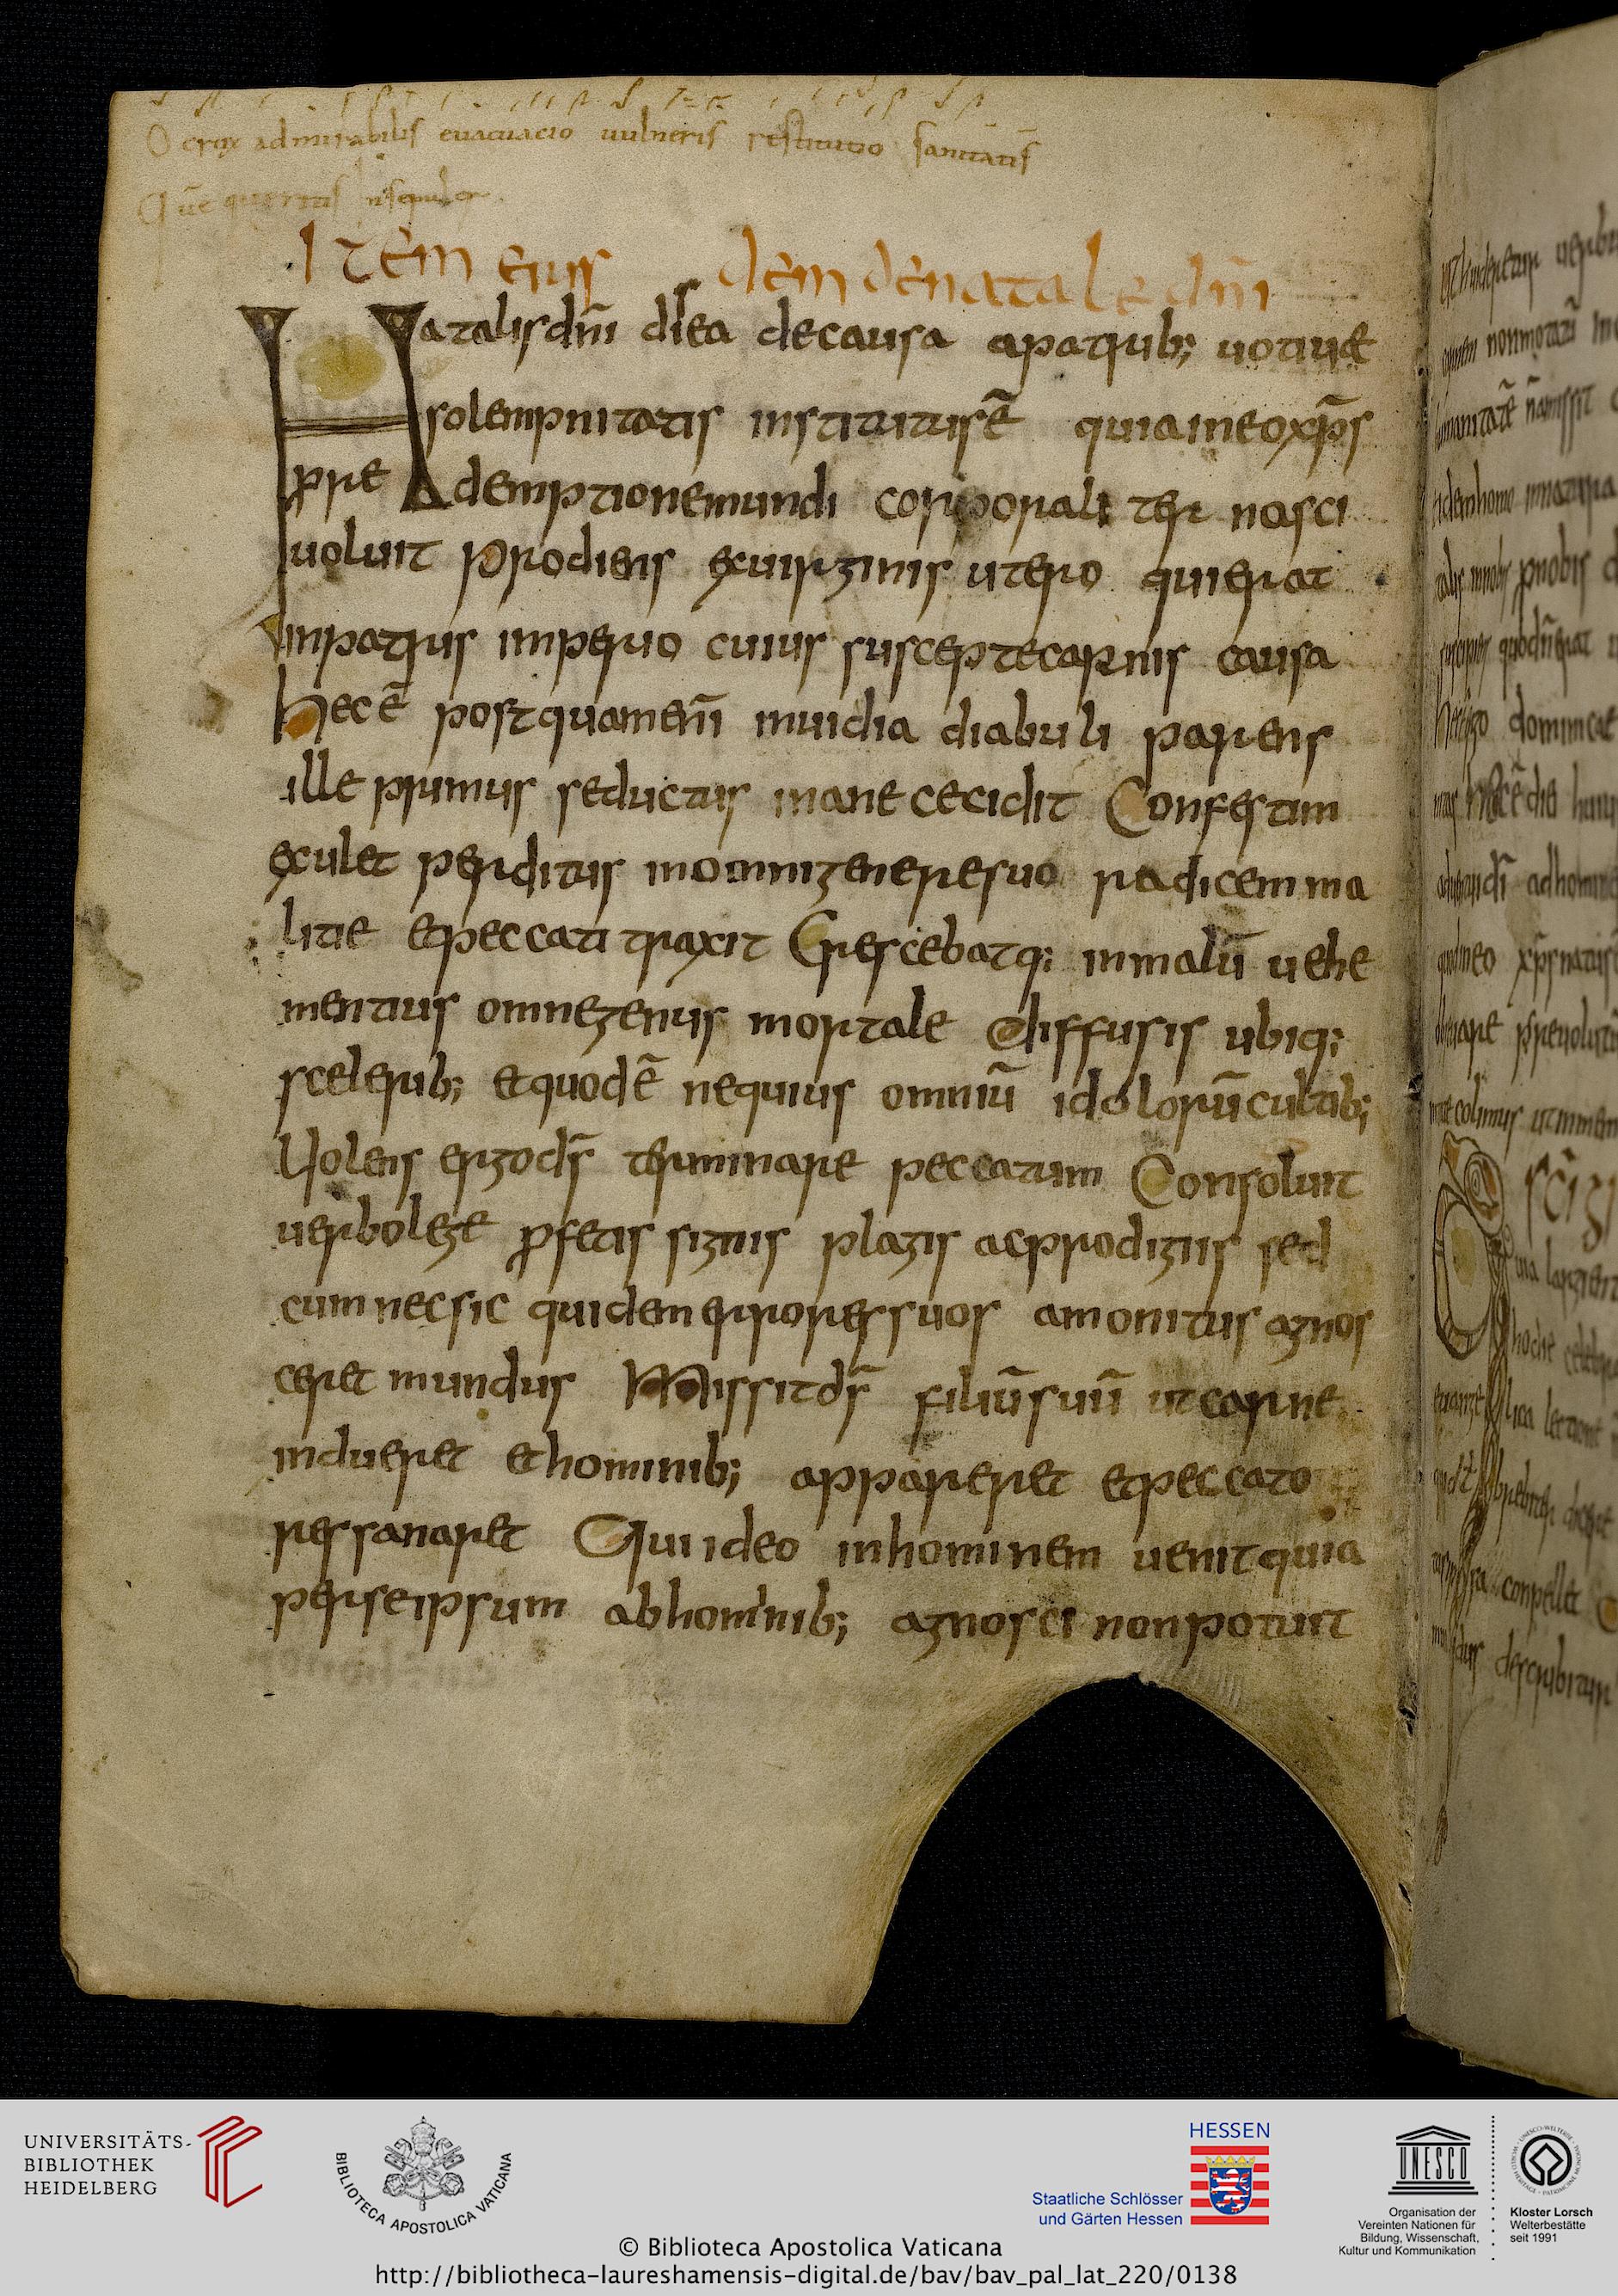 O crux admirabilis evacuacio uulneris restitutio sanitatis
Que queritis
Item eius dem de natale dñi
Natalis dñi dies ea de causa a patrib; uotiuæ
solempnitatis institutus ē quia in eo xp̄s
p re demptione mundi corporaliter nasci
uoluit Prodiens ex uirginis utero qui erat
in patris imperio cuius suscepte carnis causa
hec ē postquam enī inuidia diabuli parens
ille primus seductus inane cecidit Confestim
exulet perditus in omni genere suo radicem ma
litie et peccati traxit Crescebatq; in malū uehe
mentius omne genus mortale diffusis ubiq;
scelerib; et quod ē nequius omniū idolorū cultib;
Uolens ergo ds̄ terminare peccatum Consoluit
uerbo lege pfetis signis plagis ac prodigiis sed
cum nec sic quidem errores suos amonitus agnos
ceret mundus Missit ds̄ filiū suū ut carne
indueret et hominib; appareret et peccato
res sanaret Qui ideo in hominem uenit quia
per se ipsum ab hominib; agnosci non potuit
UNIVERSITÄTS-
BIBLIOTHEK
HEIDELBERG
BIBLIOTECA APOSTOLICA VATICANA
HESSEN
Staatliche Schlösser
und Gärten Hessen
UNESCO
Organisation der
Vereinten Nationen für
Bildung, Wissenschaft,
Kultur und Kommunikation
Kloster Lorsch
Welterbestätte
seit 1991
© Biblioteca Apostolica Vaticana
http://bibliotheca-laureshamensis-digital.de/bav/bav_pal_lat_220/0138